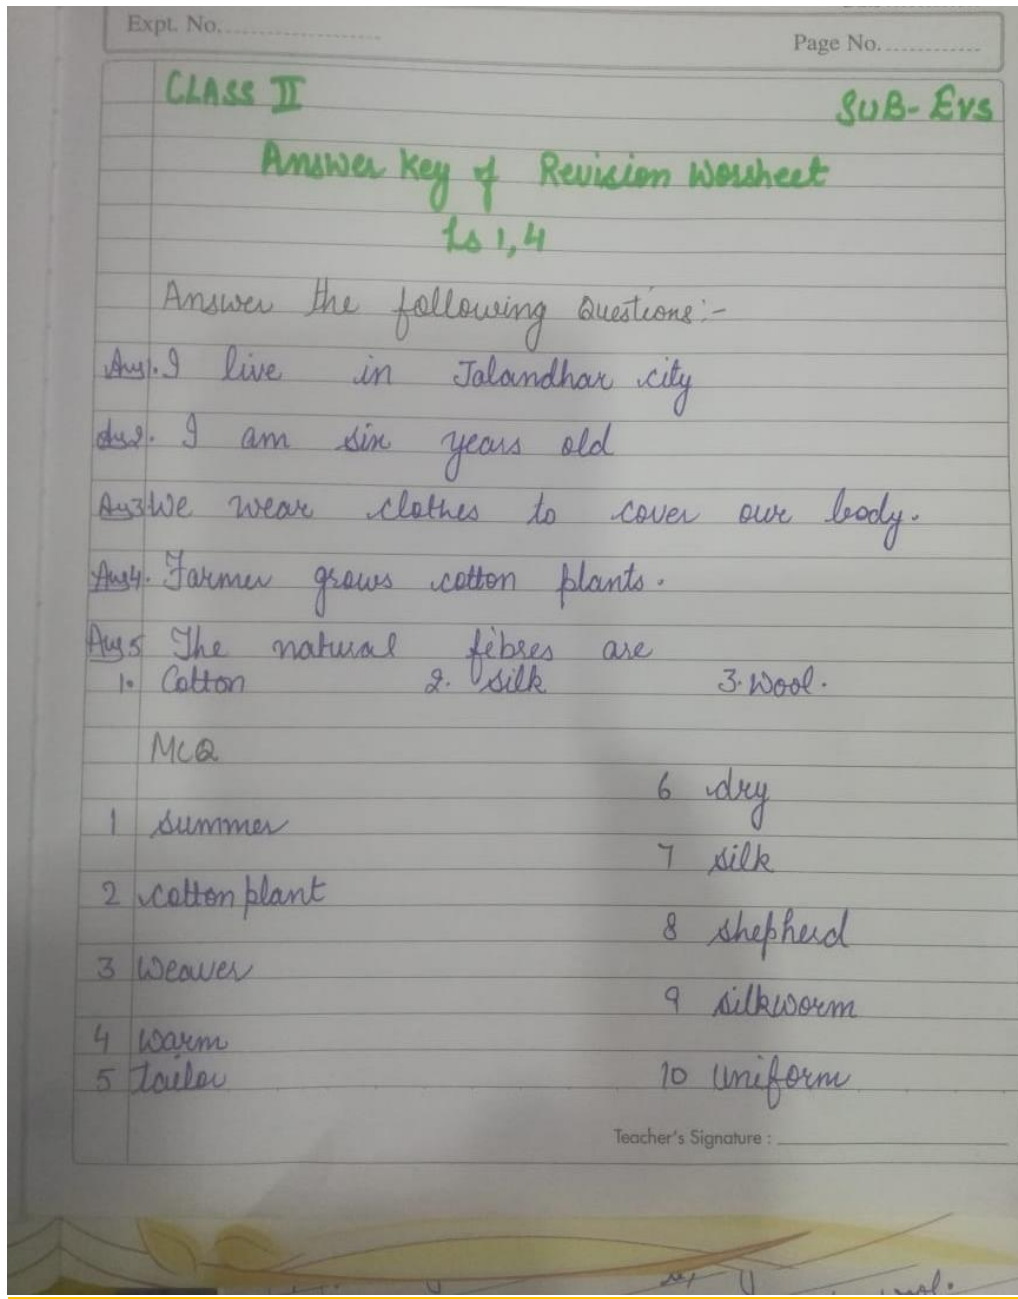 Expt. No.
Page No.
CLASS II
SUB- EVS
Answer Key of Revision Worsheet
Ls 1,4
Answer the following Questions:-
Ans1. I live in Jalandhar city
Ans2. I am six years old
Ans3 We wear clothes to cover our body.
Ans4. Farmer grows cotton plants.
Ans5 The natural fibres are
1. Cotton 2. silk 3. Wool.
MCQ
1 summer
2 cotton plant
3 Weaver
4 Warm
5 tailor
6 dry
7 silk
8 shepherd
9 silkworm
10 Uniform
Teacher's Signature :